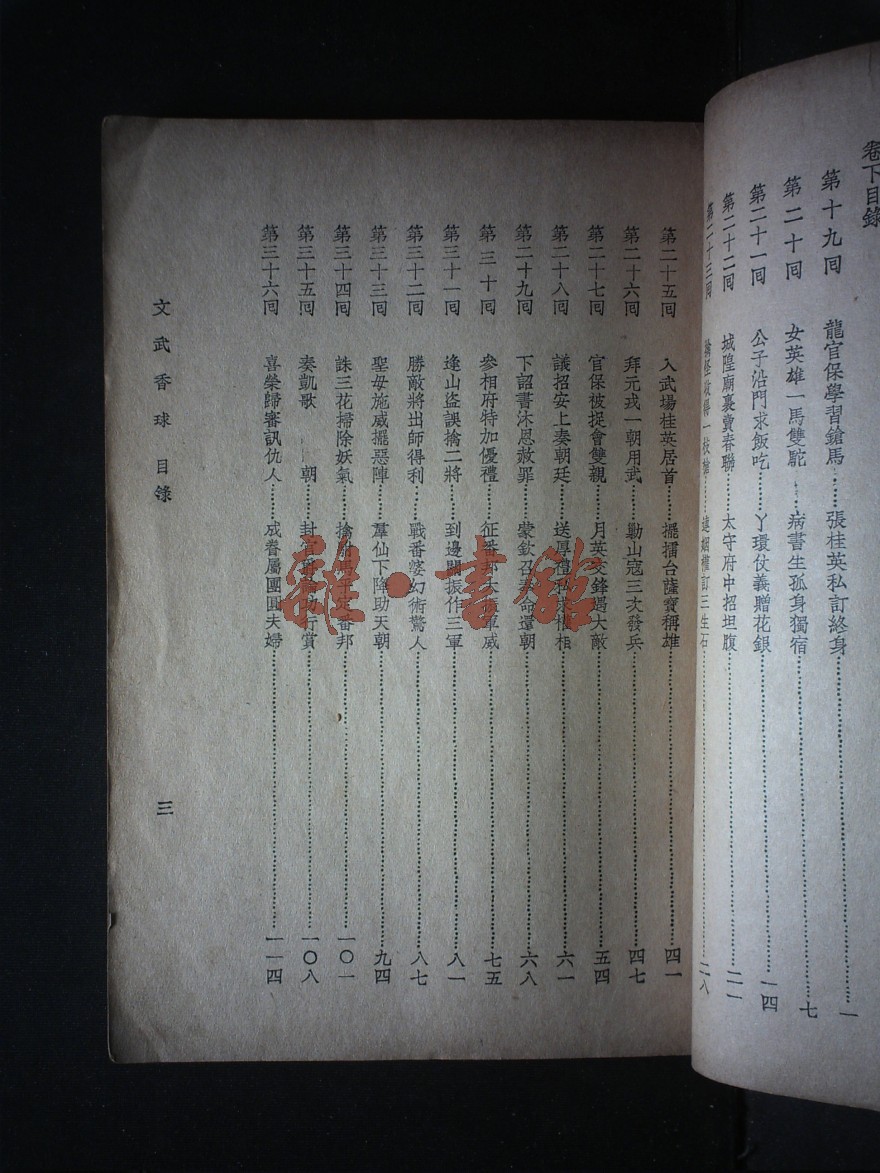 卷下目錄
第十九囘 龍官保學習鎗馬……張桂英私訂終身……一
第二十囘 女英雄一馬雙駝……病書生孤身獨宿……七
第二十一囘 公子沿門求飯吃……丫環仗義贈花銀……一四
第二十二囘 城隍廟裏賣春聯……太守府中招坦腹……二一
第二十三囘 一枝槍……訂三生石……二八
第二十五囘 入武場桂英居首……擺擂台薩寶稱雄……四一
第二十六囘 拜元戎一朝用武……勦山寇三次發兵……四七
第二十七囘 官保被捉會雙親……月英交鋒遇大敵……五四
第二十八囘 議招安上奏朝廷……送厚禮私求權相……六一
第二十九囘 下詔書沐恩赦罪……蒙欽召奉命還朝……六八
第三十囘 參相府特加優禮……征番邦大振軍威……七五
第三十一囘 逢山盜誤擒二將……到邊關振作三軍……八一
第三十二囘 勝敵將出師得利……戰番婆幻術驚人……八七
第三十三囘 聖毋施威擺惡陣……羣仙下降助天朝……九四
第三十四囘 誅三花掃除妖氣……擒 平定番邦……一〇一
第三十五囘 奏凱歌 朝……封官 行賞……一〇八
第三十六囘 喜榮歸審訊仇人……成眷屬團圓夫婦……一一四
文武香球 目錄
三
雜·書館